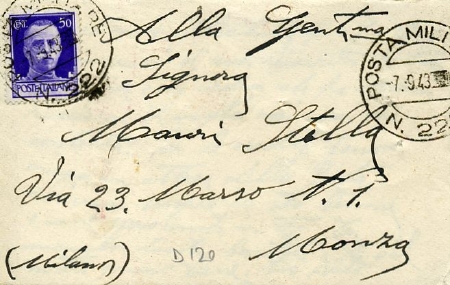 CENT. 50
POSTE ITALIANE
N. 222
Alla Gentma
Signora
Mauri Stella
Via 23 Marzo N. 1.
Monza
(Milano)
D120
POSTA MILI
-7.9.43
N. 22